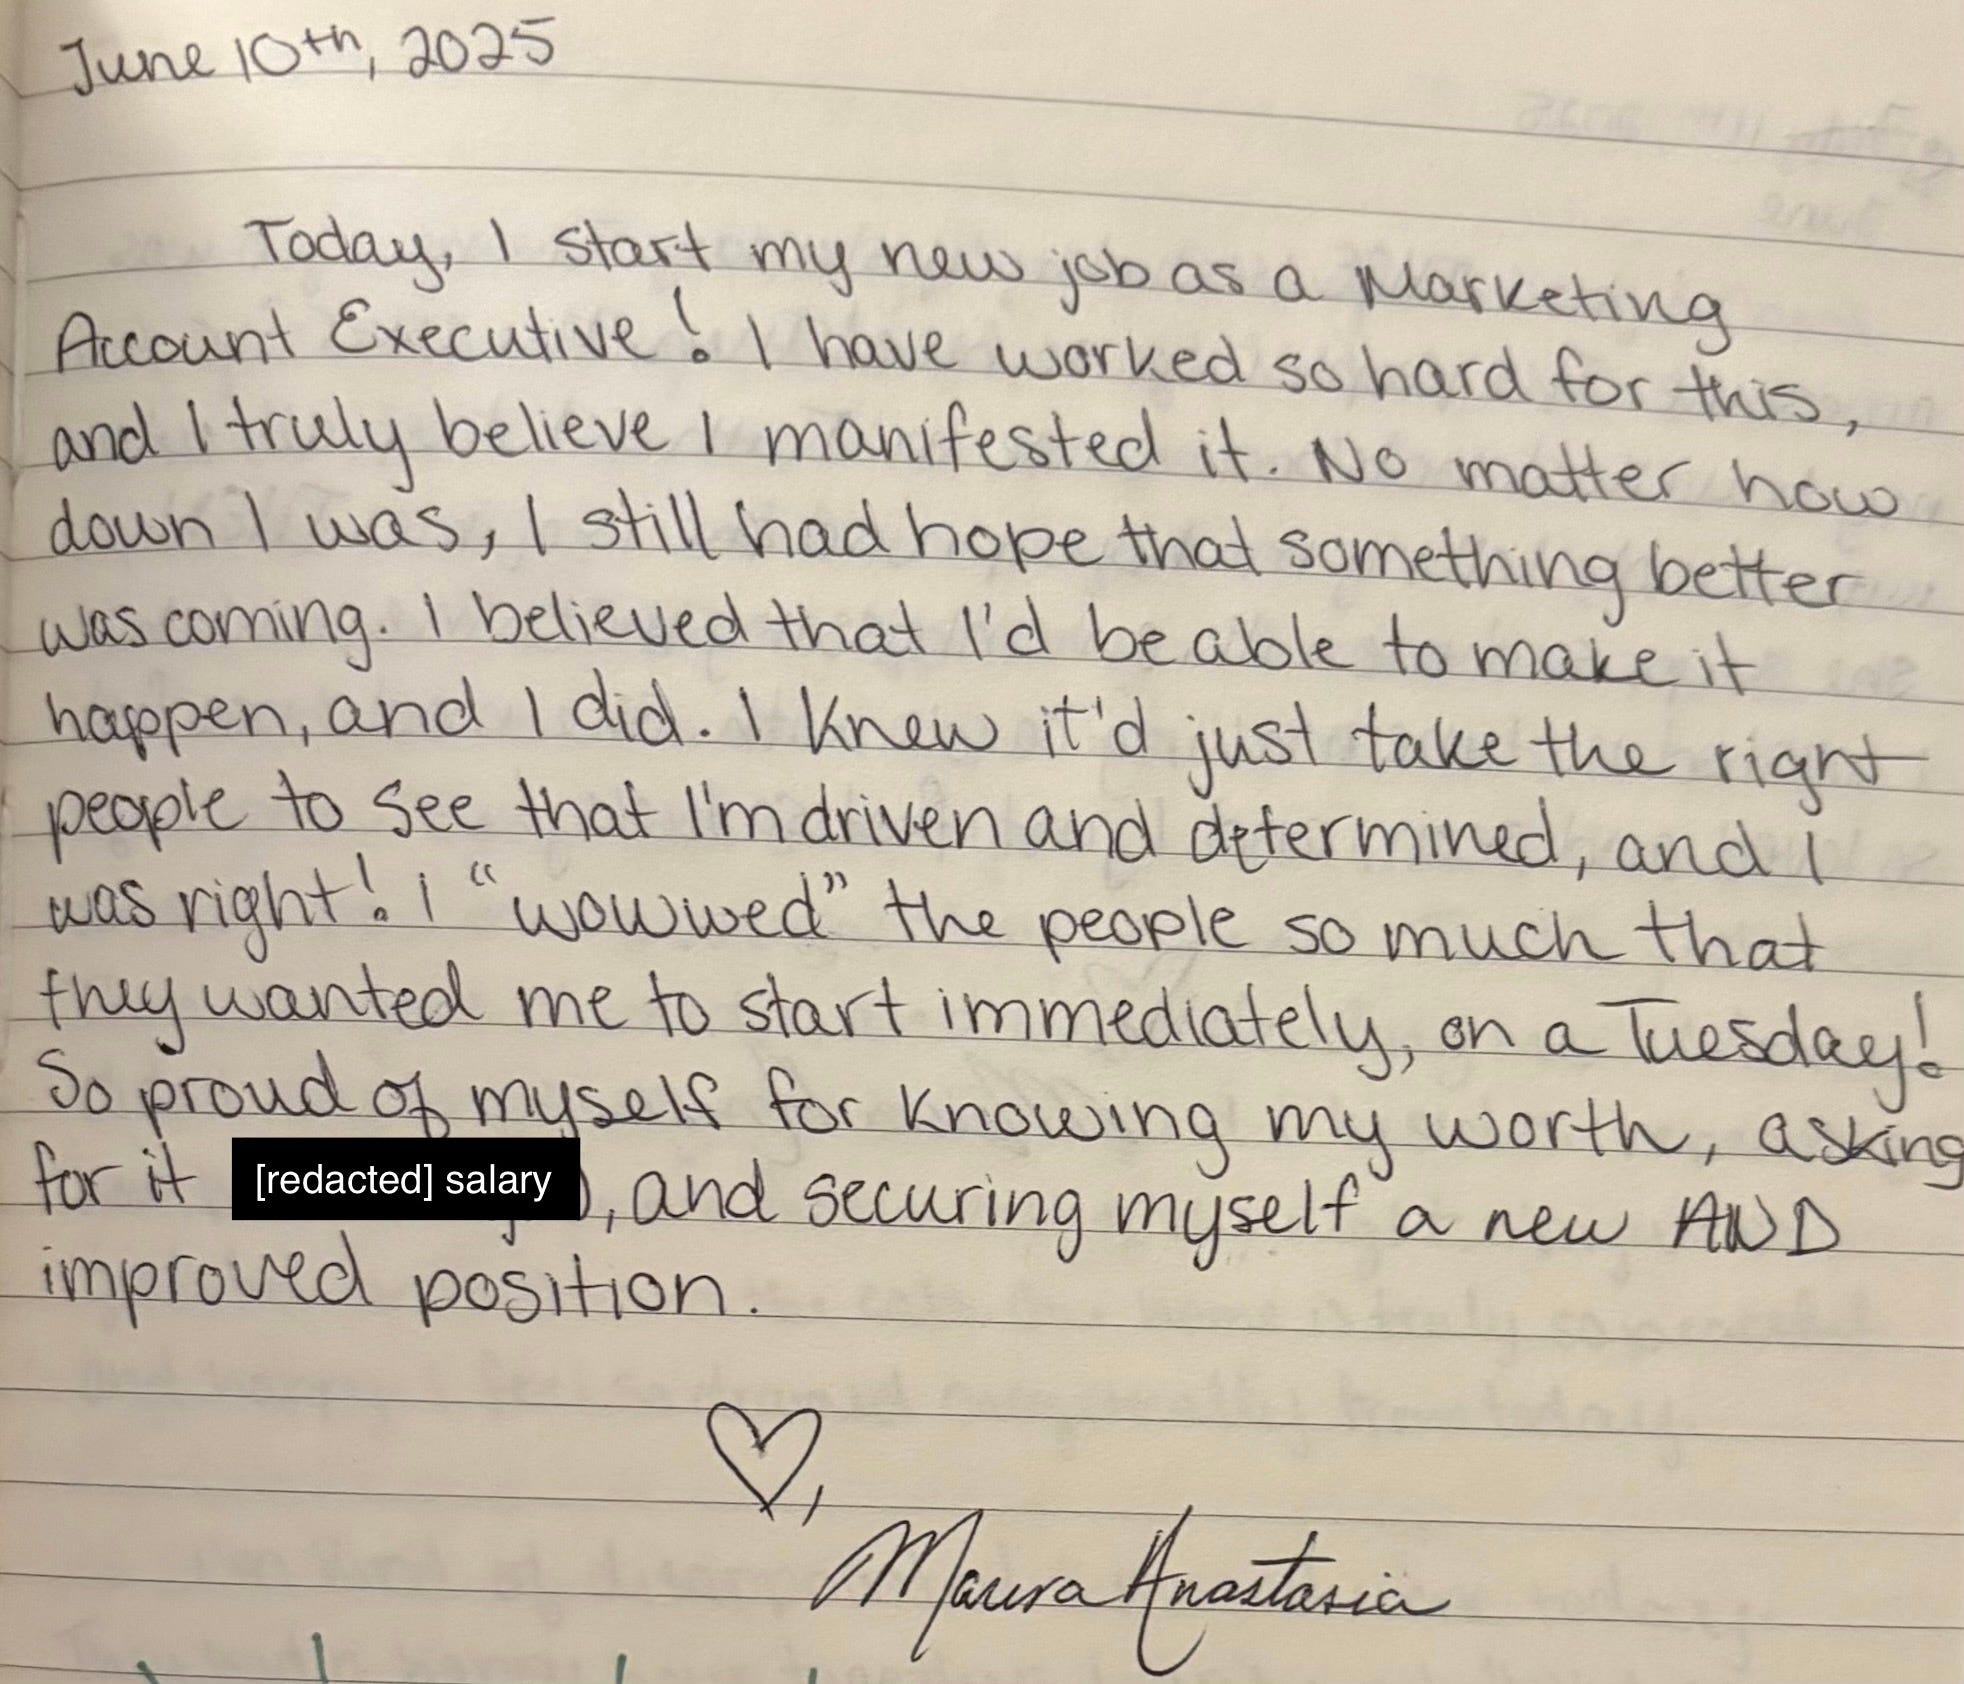 June 10th, 2025
Today, I start my new job as a Marketing
Account Executive! I have worked so hard for this,
and I truly believe I manifested it. No matter how
down I was, I still had hope that something better
was coming. I believed that I'd be able to make it
happen, and I did. I knew it'd just take the right
people to see that I'm driven and determined, and I
was right! I "wowwed" the people so much that
they wanted me to start immediately, on a Tuesday!
So proud of myself for knowing my worth, asking
for it [redacted] salary), and securing myself a new AND
improved position.
♡,
Maura Anastasia